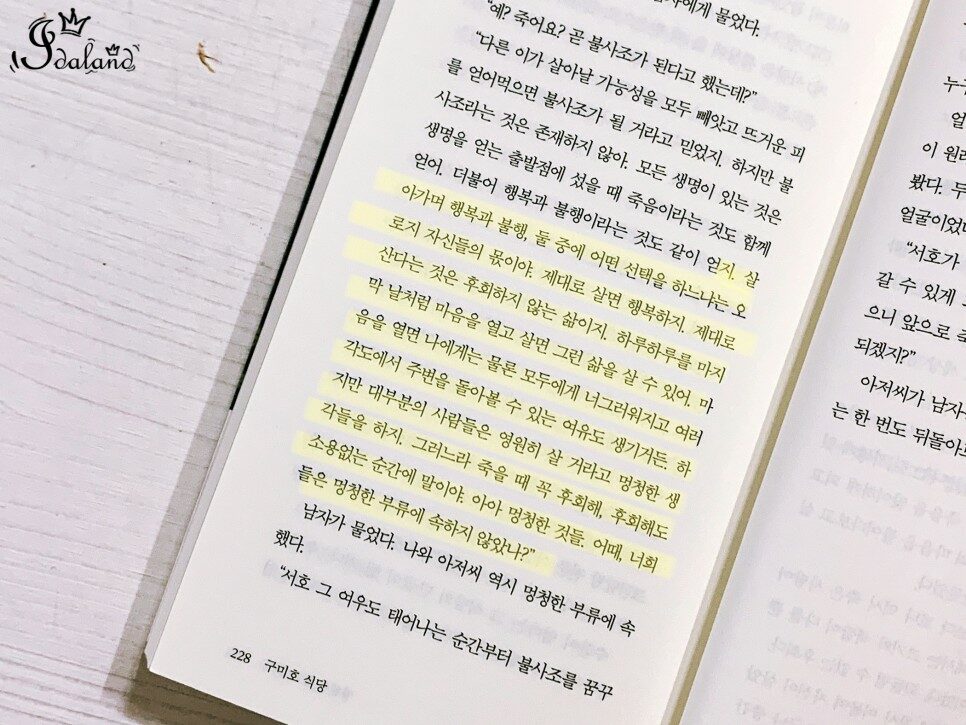 Idaland
물었다.
“예? 죽어요? 곧 불사조가 된다고 했는데?”
“다른 이가 살아날 가능성을 모두 빼앗고 뜨거운 피
를 얻어먹으면 불사조가 될 거라고 믿었지. 하지만 불
사조라는 것은 존재하지 않아. 모든 생명이 있는 것은
생명을 얻는 출발점에 섰을 때 죽음이라는 것도 함께
얻어. 더불어 행복과 불행이라는 것도 같이 얻지. 살
아가며 행복과 불행, 둘 중에 어떤 선택을 하느냐는 오
로지 자신들의 몫이야. 제대로 살면 행복하지. 제대로
산다는 것은 후회하지 않는 삶이지. 하루하루를 마지
막 날처럼 마음을 열고 살면 그런 삶을 살 수 있어. 마
음을 열면 나에게는 물론 모두에게 너그러워지고 여러
각도에서 주변을 돌아볼 수 있는 여유도 생기거든. 하
지만 대부분의 사람들은 영원히 살 거라고 멍청한 생
각들을 하지. 그러느라 죽을 때 꼭 후회해, 후회해도
소용없는 순간에 말이야. 아아 멍청한 것들. 어때, 너희
들은 멍청한 부류에 속하지 않았나?”
남자가 물었다. 나와 아저씨 역시 멍청한 부류에 속
했다.
“서호 그 여우도 태어나는 순간부터 불사조를 꿈꾸
228 구미호 식당
누구
얼
이 원래
봤다. 두
얼굴이었다
“서호가
갈 수 있게
으니 앞으로
되겠지?”
아저씨가 남자
는 한 번도 뒤돌아